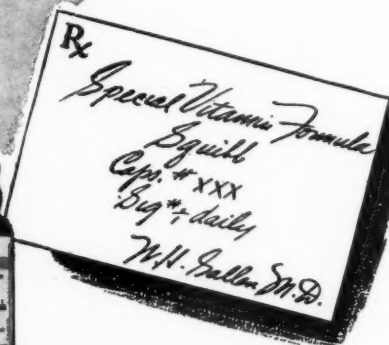 Rx
Special Vitamin Formula
Squibb
Caps. # XXX
Sig daily
M.D.